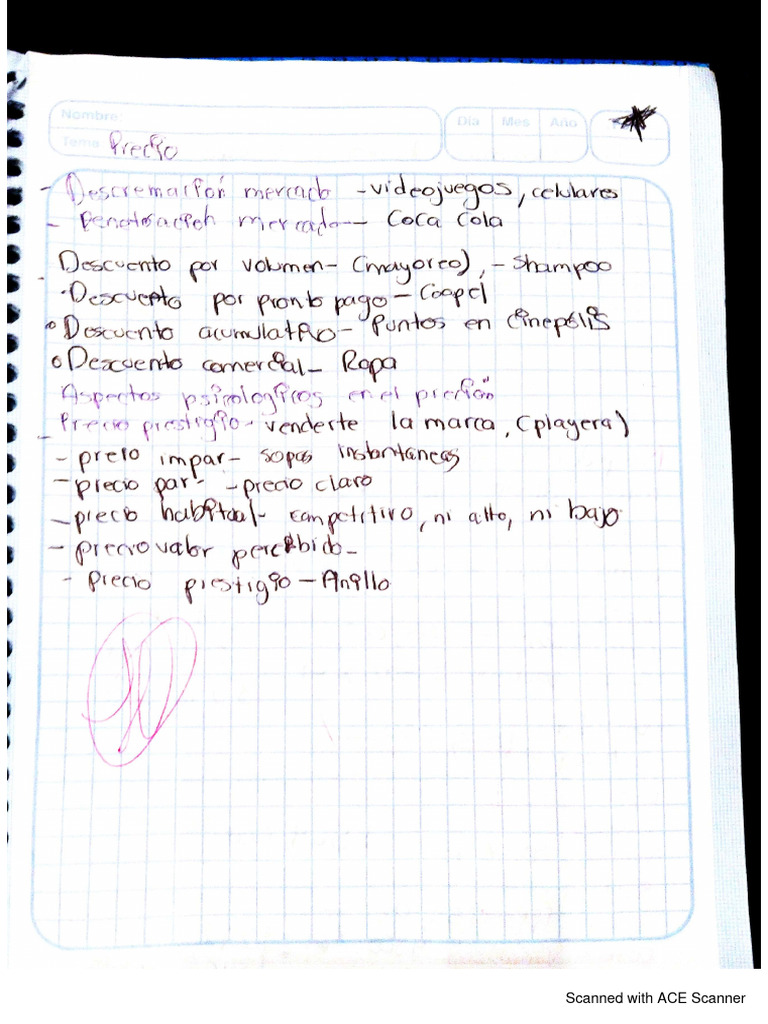 Nombre:
Día Mes Año
Tema: Precio
- Descremación mercado - videojuegos, celulares
- mercado - Coca Cola
Descuento por volumen - (mayoreo), - Shampoo
- Descuento por pronto pago - Coopel
• Descuento acumulativo - Puntos en Cinepólis
• Descuento comercial - Ropa
Aspectos psicologicos en el preción
- Precio prestigio - venderte la marca, (playera)
- preio impar - sopas instantáneas
- precio par - - precio claro
- precio habitual - competitivo, ni alto, ni bajo
- precio valor percibido -
- Precio prestigio - Anillo
10
Scanned with ACE Scanner